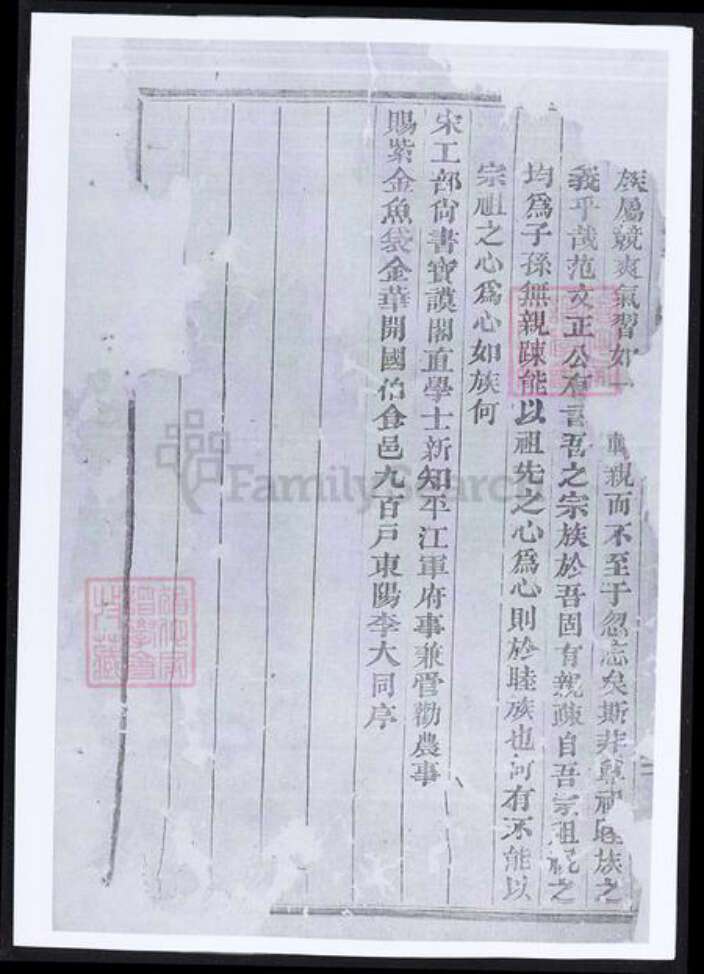 族屬競爽氣習如一 親而不至于忽忘矣斯非尊祖睦族之
義乎哉范文正公有言吾之宗族於吾固有親疎自吾宗祖視之
均為子孫無親疎能以祖先之心為心則於睦族也何有不能以
宗祖之心為心如族何
宋工部尚書寶謨閣直學士新知平江軍府事兼管勸農事
賜紫金魚袋金華開國伯食邑九百戶東陽李大同序
FamilySearch